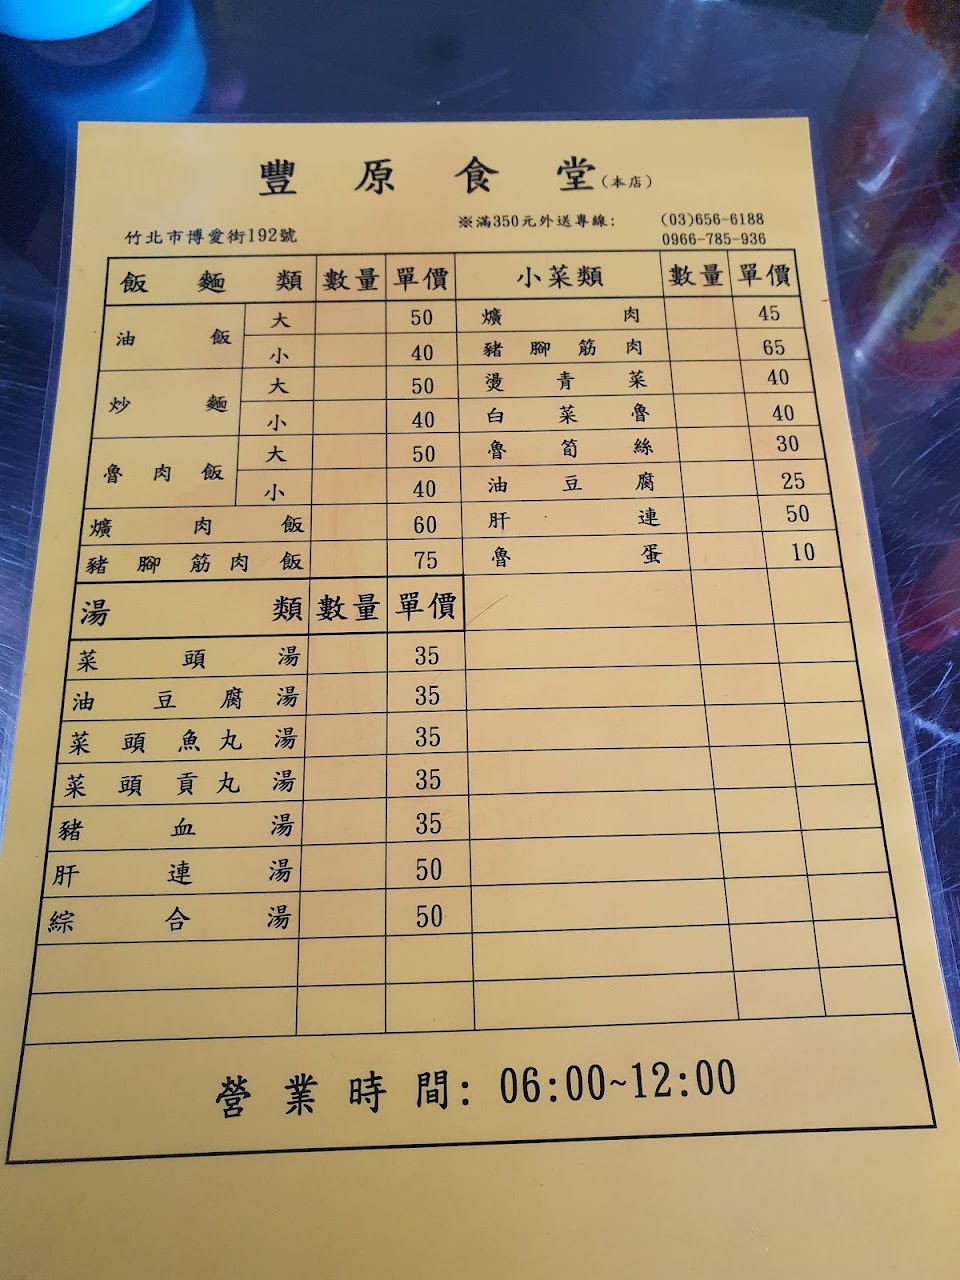 豐原食堂(本店)
竹北市博愛街192號
※滿350元外送專線: (03)656-6188
0966-785-936
飯麵類 數量 單價 小菜類 數量 單價
油飯 大 50 爌肉 45
小 40 豬腳筋肉 65
炒麵 大 50 燙青菜 40
小 40 白菜魯 40
魯肉飯 大 50 魯筍絲 30
小 40 油豆腐 25
爌肉飯 60 肝連 50
豬腳筋肉飯 75 魯蛋 10
湯類 數量 單價
菜頭湯 35
油豆腐湯 35
菜頭魚丸湯 35
菜頭貢丸湯 35
豬血湯 35
肝連湯 50
綜合湯 50
營業時間: 06:00~12:00